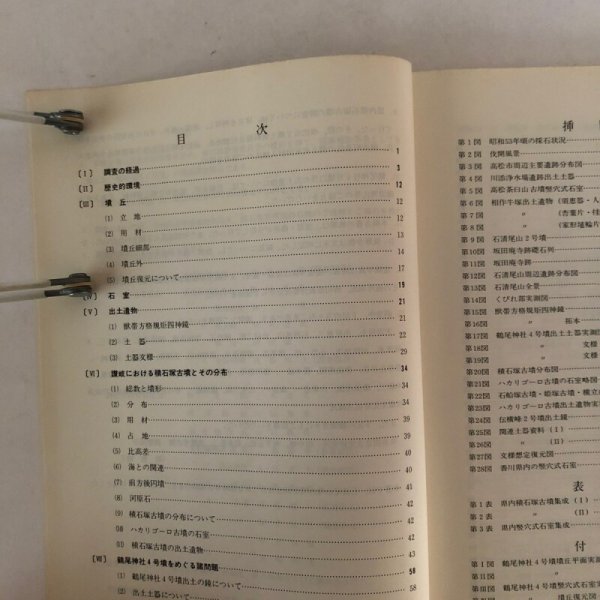 目次
〔Ⅰ〕 調査の経過 1
〔Ⅱ〕 歴史的環境 3
〔Ⅲ〕 墳丘 12
(1) 立地 12
(2) 用材 12
(3) 墳丘細部 13
(4) 墳丘外 14
(5) 墳丘復元について 17
〔Ⅳ〕 石室 19
〔Ⅴ〕 出土遺物 21
(1) 獣帯方格規矩四神鏡 21
(2) 土器 22
(3) 土器文様 29
〔Ⅵ〕 讃岐における積石塚古墳とその分布 34
(1) 総数と墳形 34
(2) 分布 34
(3) 用材 39
(4) 占地 39
(5) 比高差 40
(6) 海との関連 40
(7) 前方後円墳 40
(8) 河原石 41
(9) 積石塚古墳の分布について 42
(10) ハカリゴーロ古墳の石室 42
(11) 積石塚古墳の出土遺物 43
〔Ⅶ〕 鶴尾神社4号墳をめぐる諸問題 58
(1) 鶴尾神社4号墳出土の鏡について 58
(2) 出土土器について
挿
第1図 昭和53年頃の採石状況
第2図 伐開風景
第3図 高松市周辺主要遺跡分布図
第4図 川添浄水場遺跡出土土器
第5図 高松茶臼山古墳竪穴式石室
第6図 相作牛塚出土遺物（須恵器・人
第7図 〃 （杏葉片・挂
第8図 〃 （家形埴輪片
第9図 石清尾山2号墳
第10図 坂田廃寺跡礎石列
第11図 坂田廃寺跡
第12図 石清尾山周辺遺跡分布図
第13図 石清尾山全景
第14図 くびれ部実測図
第15図 獣帯方格規矩四神鏡
第16図 〃 拓本
第17図 鶴尾神社4号墳出土土器実測
第18図 〃 文様
第19図 〃 文様
第20図 積石塚古墳分布図
第21図 ハカリゴーロ古墳の石室略図
第22図 石船塚古墳・姫塚古墳・横立
第23図 ハカリゴーロ古墳出土遺物実
第24図 伝横峰2号墳出土鏡
第25図 関連土器資料（Ⅰ）
第26図 〃 （Ⅱ）
第27図 文様想定復元図
第28図 香川県内の竪穴式石室
表
第1表 県内積石塚古墳集成（Ⅰ）
第2表 〃 （Ⅱ）
第3表 県内竪穴式石室集成
付
第Ⅰ図 鶴尾神社4号墳墳丘平面実
第Ⅱ図 〃
第Ⅲ図 鶴尾神社4号墳石室
〃 墳丘復元図